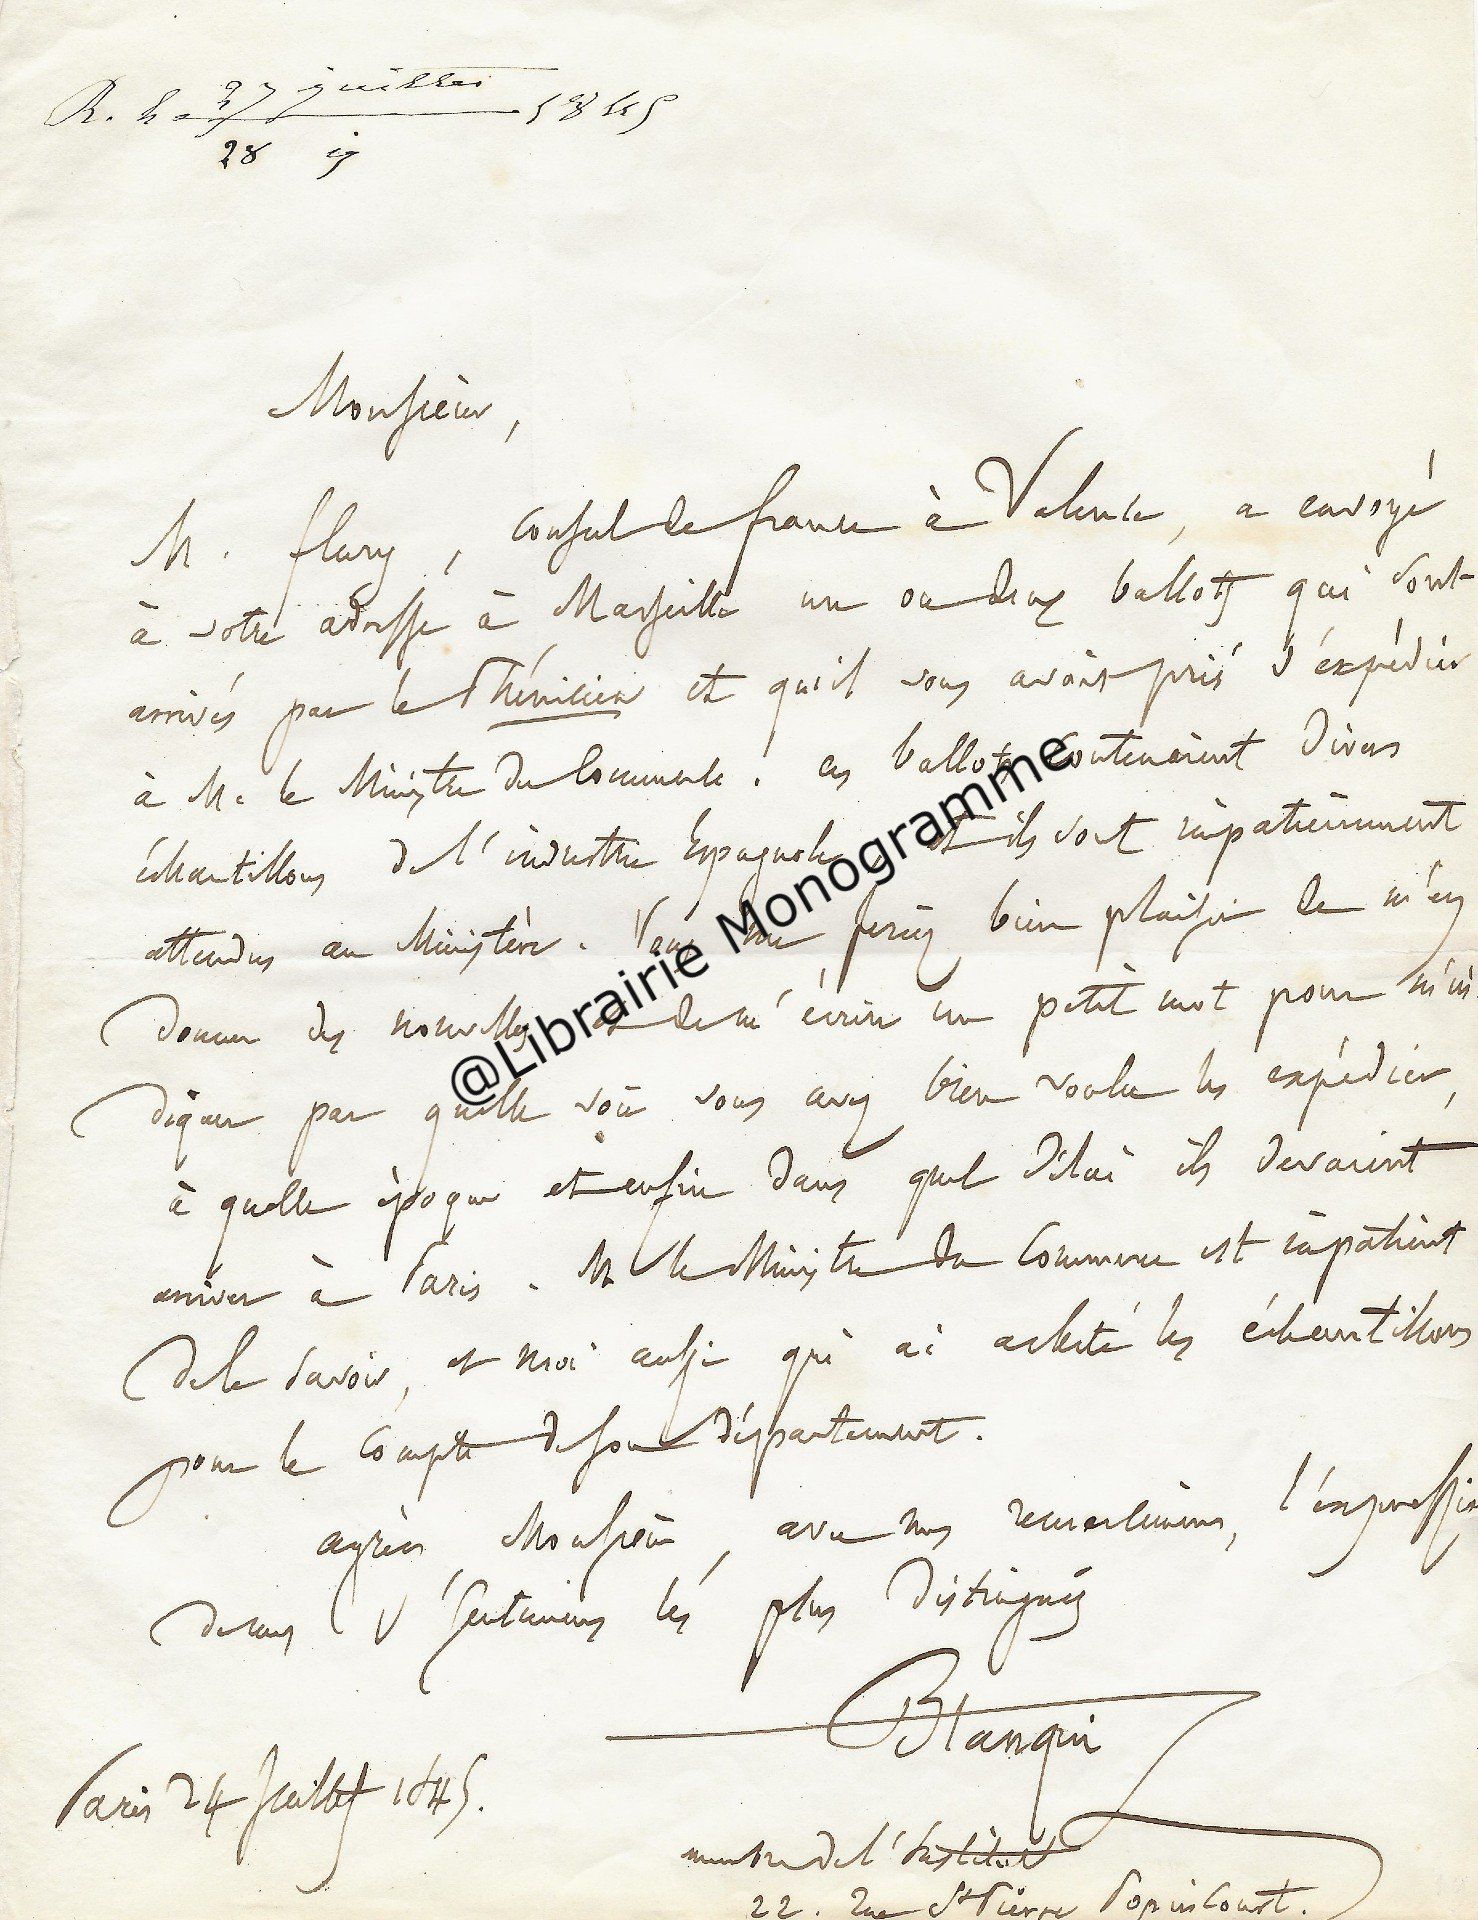 R. le 27 juillet 1845
28 id
Monsieur,
M. flury, Consul de france à Valence, a envoyé
à votre adresse à Marseille un ou deux ballots qui sont
arrivés par le Phénicien et qu'il vous avait prié d'expédier
à M. le Ministre du Commerce. ces ballots contenaient divers
échantillons de l'industrie Espagnole et ils sont impatiemment
attendus au Ministère. Vous me feriez bien plaisir de m'en
donner des nouvelles et de m'écrire un petit mot pour m'in-
diquer par quelle voie vous avez bien voulu les expédier,
à quelle époque et enfin dans quel délai ils devaient
arriver à Paris. M le Ministre du Commerce est impatient
de le savoir, et moi aussi qui ai acheté les échantillons
pour le Compte de son département.
agréez Monsieur, avec mes remerciemens, l'expression
de mes sentimens les plus distingués
Blanqui
Paris 24 Juillet 1845.
membre de l'Institut
22. rue St Pierre Popincourt.
@Librairie Monogramme